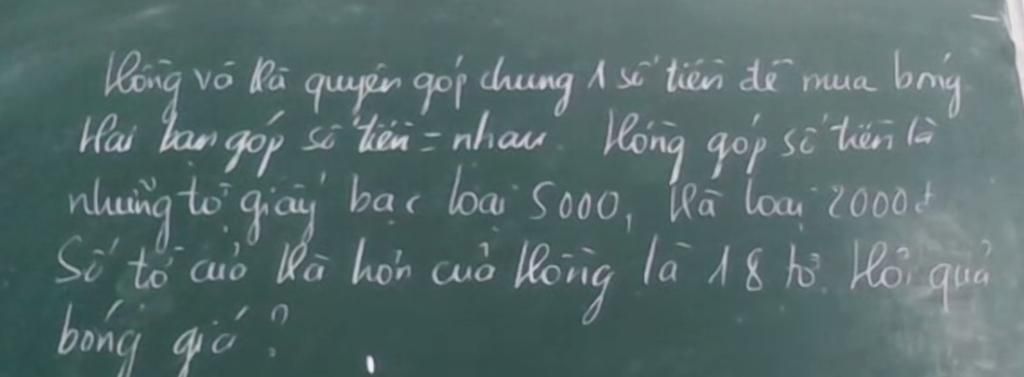 Hồng vò Hà quyên góp chung 1 số tiền để mua bóng
Hai bạn góp số tiền = nhau. Hồng góp số tiền là
những tờ giấy bạc loại 5000, Hà loại 2000đ
Số tờ cuỏ Hà hơn cuỏ Hồng là 18 tờ. Hỏi quả
bóng giá?